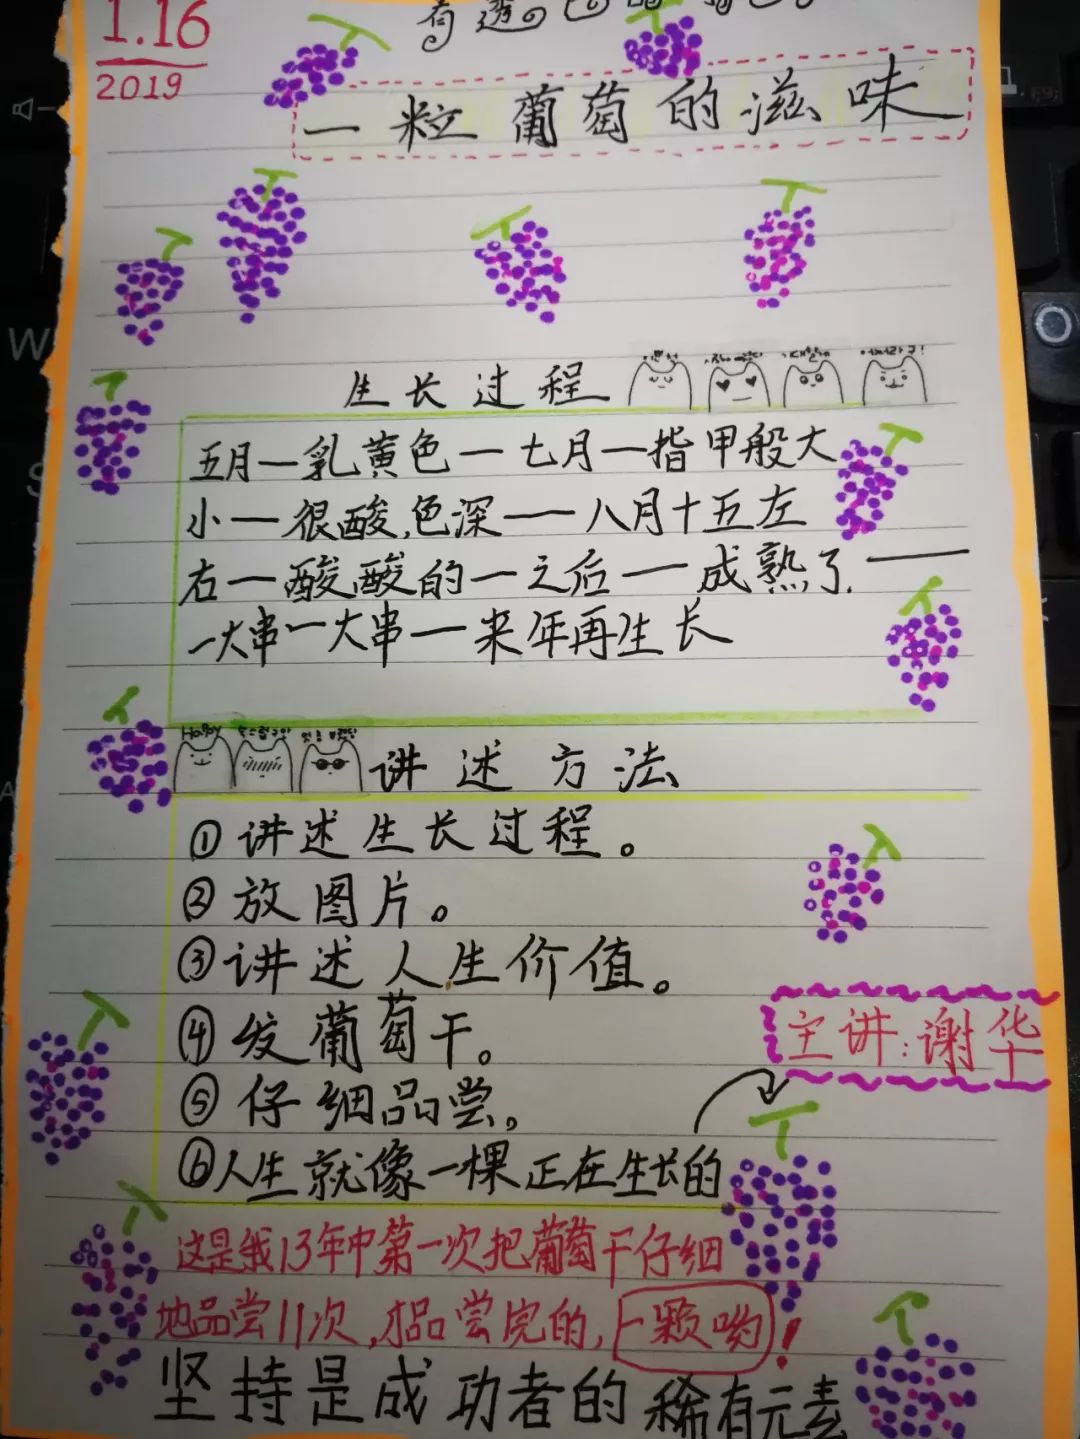 1.16
2019
一粒葡萄的滋味
生长过程
五月一乳黄色一七月一指甲般大
小一很酸,色深——八月十五左
右一酸酸的一之后一成熟了.——
一大串一大串一来年再生长
Happy
讲述方法
①讲述生长过程。
②放图片。
③讲述人生价值。
④发葡萄干。
⑤仔细品尝。
⑥人生就像一棵正在生长的
主讲:谢华
这是我13年中第一次把葡萄干仔细
地品尝11次,才品尝完的,一颗哟!
坚持是成功者的稀有元素